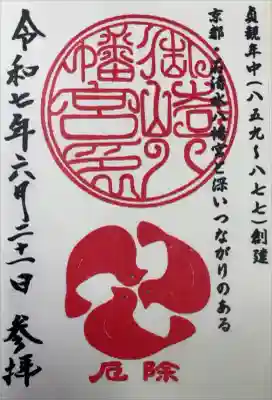 貞観年中(八五九~八七七)創建
京都・石清水八幡宮と深いつながりのある
令和七年六月二十一日 参拝
厄除